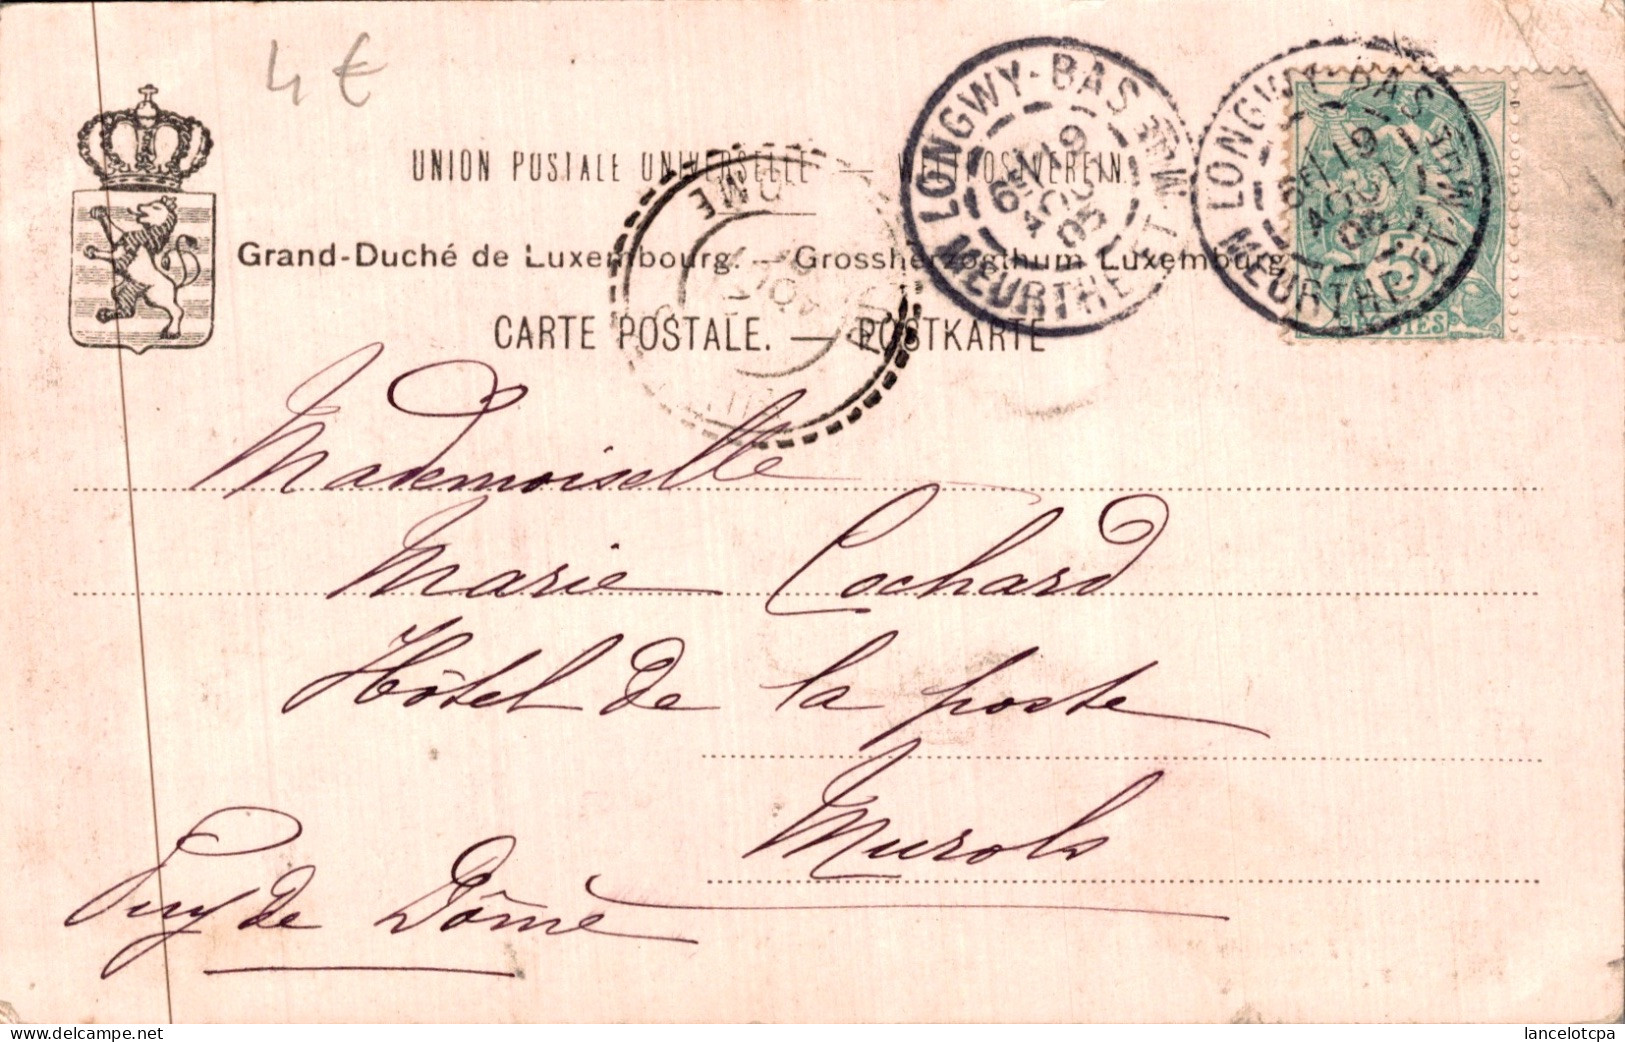 4 €
UNION POSTALE UNIVERSELLE — WELTPOSTVEREIN.
Grand-Duché de Luxembourg. — Grossherzogthum Luxemburg
CARTE POSTALE. — POSTKARTE
LONGWY-BAS
19
AOUT
05
MEURTHE-ET-M
LONGWY-BAS
19
AOUT
MEURTHE-ET-M
POSTES
Mademoiselle
Marie Cochard
Hôtel de la poste
Murols
Puy de Dôme
lancelotcpa